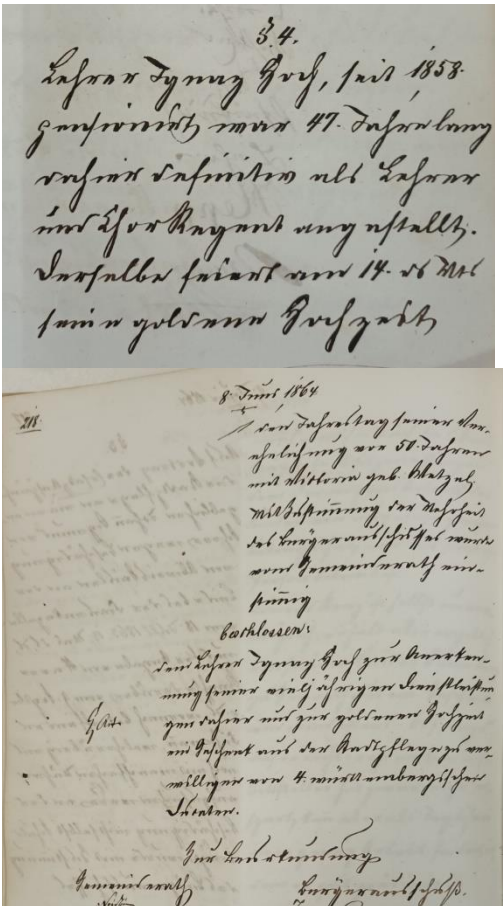 §. 4.
Lehrer Ignaz Hoch, seit 1858.
pensionirt, war 47. Jahre lang
dahier definitiv als Lehrer
und Chor Regent angestellt.
Derselbe feiert am 14. ds Mts
seine goldene Hochzeit,
218.
8. Juni 1864
den Jahrestag seiner Ver-
ehelichung vor 50. Jahren
mit Victoria geb. Wetzel,
Mit Zustimmung der Mehrheit
des Bürgerausschusses wurde
vom Gemeinderath ein-
stimmig
beschlossen:
dem Lehrer Ignaz Hoch zur Anerken-
nung seiner vieljährigen Dienstleistun
gen dahier und zur goldenen Hochzeit
ein Geschenk aus der Stadtpflege zu ver-
willigen von 4. württembergischen
Ducaten.
Zur Beurkundung
Gemeinderath
Bürgerausschuß.